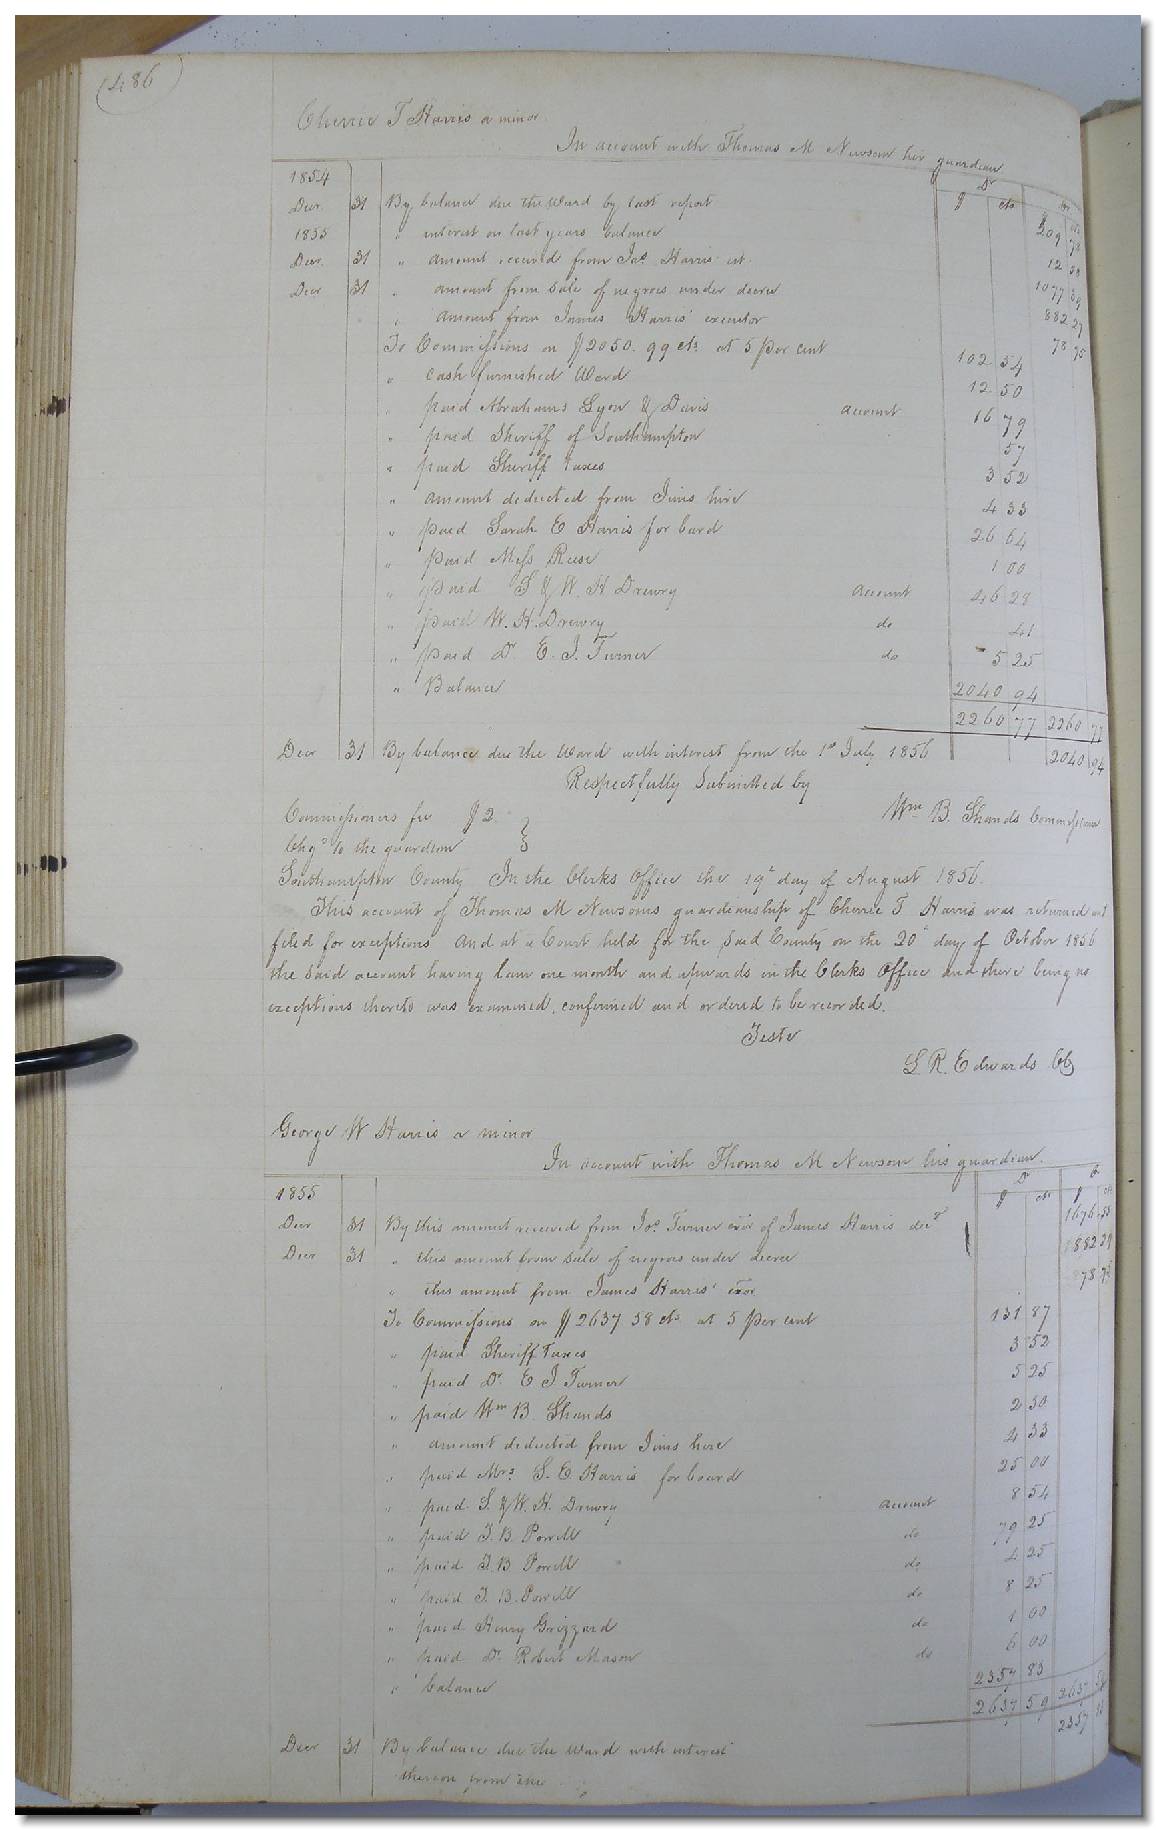 (486
Cherrie T Harris a minor
In account with Thomas M Newsom her guardian
1854 Dr
$ cts
Decr 31 By balance due the Ward by last report 209 78
1855 " interest on last years balance 12
Decr 31 " amount received from Jas Harris est. 1077 39
Decr 31 " amount from sale of negroes under decree 882 27
" amount from James Harris' executor 78 75
To Commissions on $2050.99 cts at 5 per cent 102 54
" cash furnished Ward 12 50
" paid Abrahams Lyon & Davis account 16 79
" paid Sheriff of Southampton 57
" paid Sheriff taxes 3 52
" amount deducted from Jims hire 4 33
" paid Sarah E Harris for bard 26 64
" paid Miss Reese 1 00
" paid S & W. H Drewry account 46 28
" paid W. H. Drewry do 41
" paid Dr E. J. Turner do 5 25
" Balance 2040 94
2260 77 2260 77
Decr 31 By balance due the Ward with interest from the 1st July 1856 2040 94
Respectfully Submitted by
Wm B. Shands Commissioner
Commissioners fee $2 }
Chgd to the guardian
Southampton County In the Clerks Office the 19th day of August 1856.
This account of Thomas M Newsoms guardianship of Cherrie T Harris was returned and
filed for exceptions And at a Court held for the said County on the 20th day of October 1856
the said account having lain one month and upwards in the Clerks Office and there being no
exceptions thereto was examined, confirmed and ordered to be recorded.
Teste
L. R. Edwards Clk
George W Harris a minor
In account with Thomas M Newsom his guardian.
1855 Dr Cr
$ cts $ cts
Decr 31 By this amount received from Jos. Turner exor of James Harris decd 1676 55
Decr 31 " this amount from sale of negroes under decree 882 29
" this amount from James Harris' exor 78 75
To Commissions on $2637 58 cts at 5 per cent 131 87
" paid Sheriff Taxes 3 52
" paid Dr. E J Turner 5 25
" paid Wm B. Shands 2 50
" amount deducted from Jims hire 4 33
" paid Mrs. S. E. Harris for board 25 00
" paid S. & W. H. Drewry account 8 54
" paid J. B. Powell do 79 25
" paid J. B Powell do 4 25
" paid J. B. Powell do 8 25
" paid Henry Grizzard do 1 00
" paid Dr. Robert Mason do 6 00
" balance 2357 83
2637 59 2637
2357
Decr 31 By balance due the Ward with interest
thereon from the